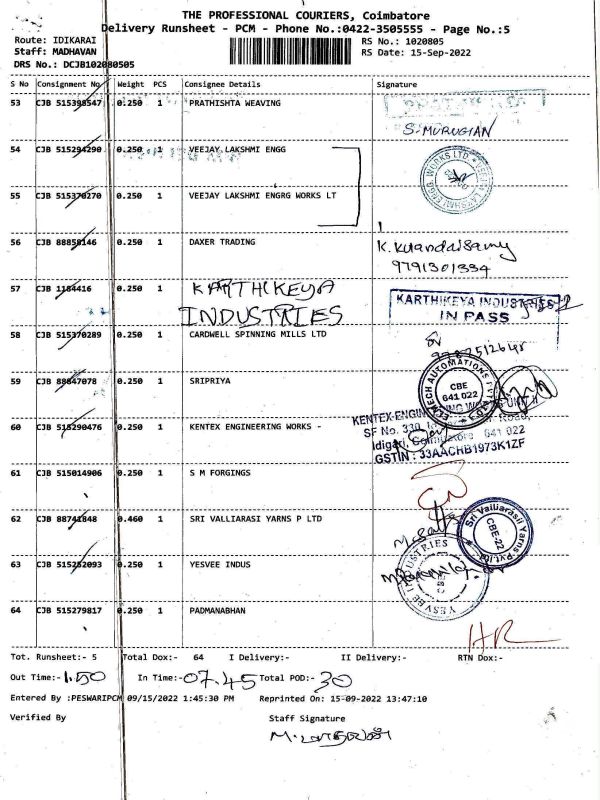 THE PROFESSIONAL COURIERS, Coimbatore
Delivery Runsheet - PCM - Phone No.:0422-3505555 - Page No.:5
Route: IDIKARAI
RS No.: 1020805
Staff: MADHAVAN
RS Date: 15-Sep-2022
DRS No.: DCJB102080505
S No Consignment No Weight PCS Consignee Details Signature
53 CJB 515398547 0.250 1 PRATHISHTA WEAVING
S. MURUGIAN
54 CJB 515294290 0.250 1 VEEJAY LAKSHMI ENGG
55 CJB 515370270 0.250 1 VEEJAY LAKSHMI ENGRG WORKS LT
56 CJB 88858146 0.250 1 DAXER TRADING
9791301334
57 CJB 1184416 0.250 1 KARTHIKEYA INDUSTRIES
KARTHIKEYA INDUSTRIES
IN PASS
58 CJB 515370289 0.250 1 CARDWELL SPINNING MILLS LTD
59 CJB 88847078 0.250 1 SRIPRIYA
CBE
641 022
60 CJB 515290476 0.250 1 KENTEX ENGINEERING WORKS -
GSTIN : 33AACHB1973K1ZF
61 CJB 515014906 0.250 1 S M FORGINGS
62 CJB 88741848 0.460 1 SRI VALLIARASI YARNS P LTD
Sri Valliarasi Yarns Pvt.Ltd
CBE-22
63 CJB 515252093 0.250 1 YESVEE INDUS
YESVEE INDUSTRIES
64 CJB 515279817 0.250 1 PADMANABHAN
Tot. Runsheet:- 5 Total Dox:- 64 I Delivery:- II Delivery:- RTN Dox:-
Out Time:- 1.50 In Time:- 07.45 Total POD:- 30
Entered By :PESWARIPCM 09/15/2022 1:45:30 PM Reprinted On: 15-09-2022 13:47:10
Verified By Staff Signature